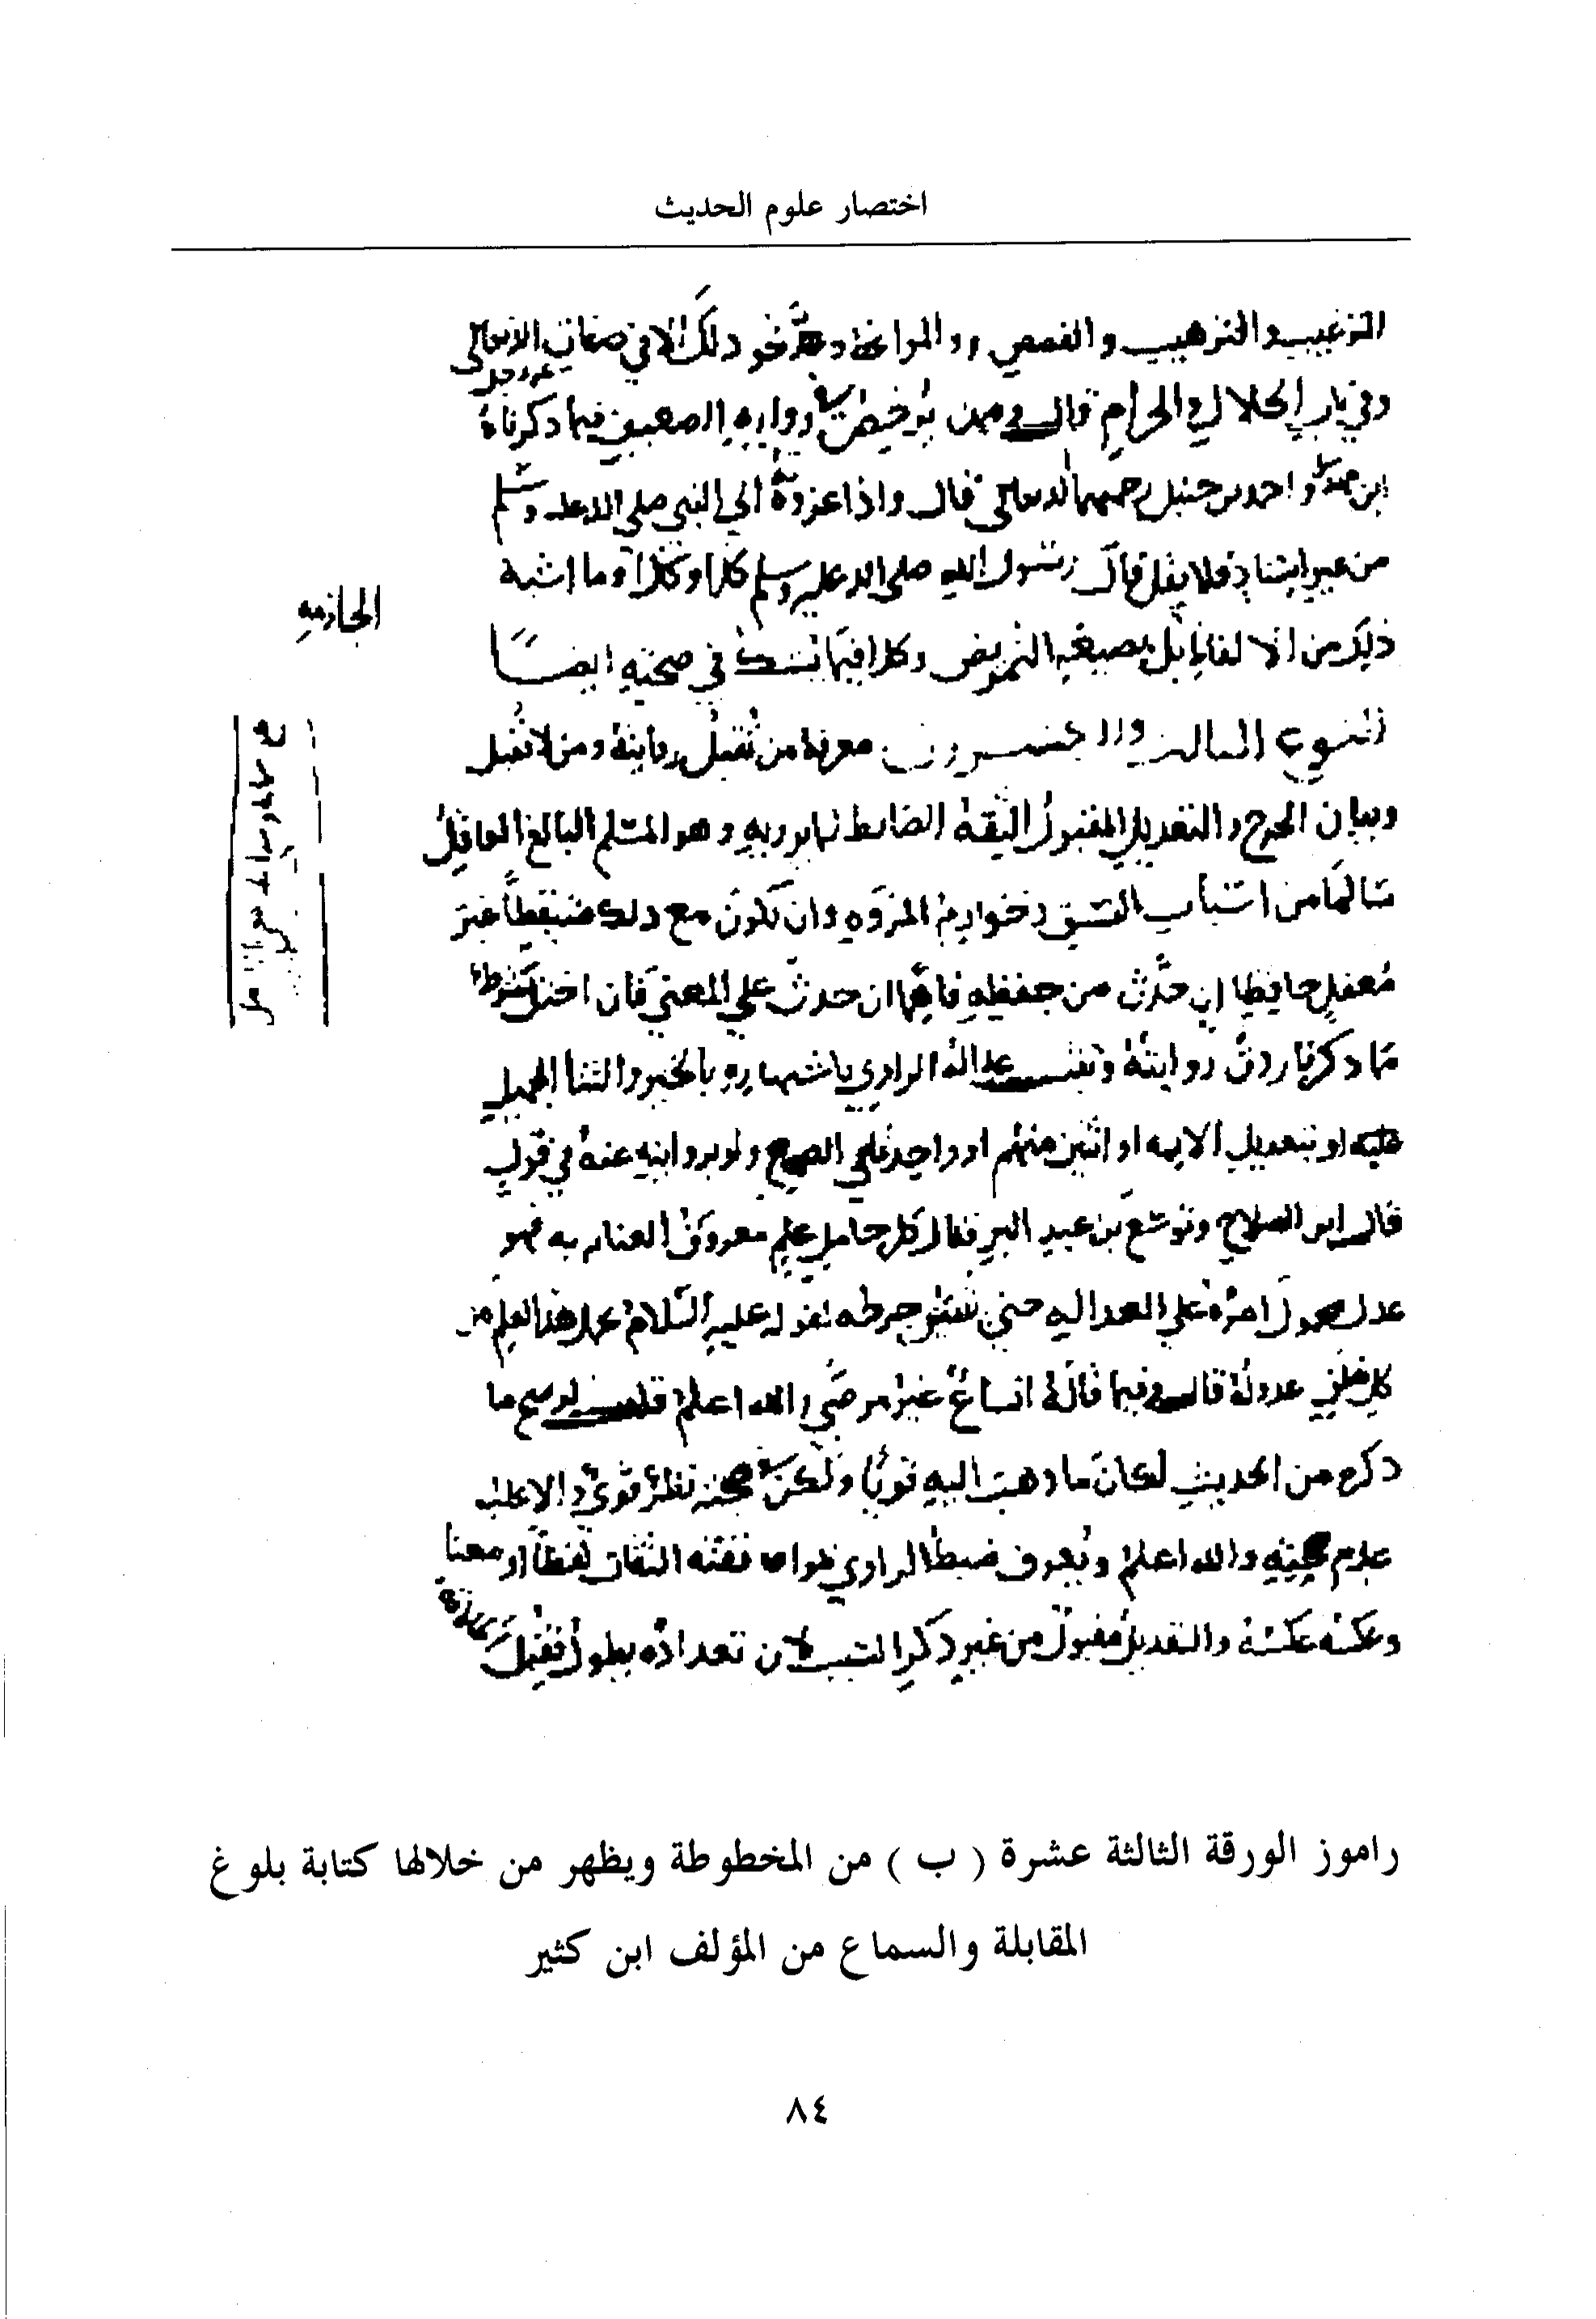 اختصار علوم الحديث
الترغيب والترهيب والقصص والمواعظ ونحو ذلك الا في صفات الله تعالى
عز وجل
وفي باب الحلال والحرام قال وممن يرخص في رواية الضعيف فيما ذكرناه
ابن مهدي واحمد بن حنبل رحمهما الله تعالى قال واذا عزوته الي النبي صلي الله عليه وسلم
من غير اسناد فلا يقل قال رسول الله صلي الله عليه وسلم كذا وكذا وما اشبه
ذلك من الالفاظ بل بصيغة التمريض وكذا فيما نشك في صحته ايضا
الجازمه
النوع الثالث والعشرون معرفة من تقبل روايته ومن لا تقبل
وبيان الجرح والتعديل المقبول الثقة الضابط لما يرويه وهو المسلم البالغ العاقل
سالما من اسباب الفسق وخوارم المروه وان يكون مع ذلك متيقظا غير
مغفل حافظا ان حدث من حفظه فاهما ان حدث علي المعني فان اختل شرط
مما ذكرنا ردت روايته وتثبت عدالة الراوي باشتهاره بالخير والثنا الجميل
عليه او بتعديل الايمه او اثنين منهم او واحد علي الصحيح ولو بروايته عنه في قول
قال ابن الصلاح وتوسع بن عبد البر فقال كل حامل علم معروف العنايه به فهو
عدل محمول امره علي العداله حتي جرحه لقوله عليه السلام يحمل هذا العلم من
كل خلف عدوله قال وفيما قاله اتساع غير مرضي والله اعلم قلت لو صح ما
ذكره من الحديث لكان ما ذهب اليه قويا ولكن في صحته نظر قوي والاغلب
عدم صحته والله اعلم ويعرف ضبط الراوي بموافقته الثقات لفظا او معنا
وعكسه عكسه والتعديل مقبول من غير ذكر السبب لان تعداده يطول فقبل
راموز الورقة الثالثة عشرة ( ب ) من المخطوطة ويظهر من خلالها كتابة بلوغ
المقابلة والسماع من المؤلف ابن كثير
٨٤